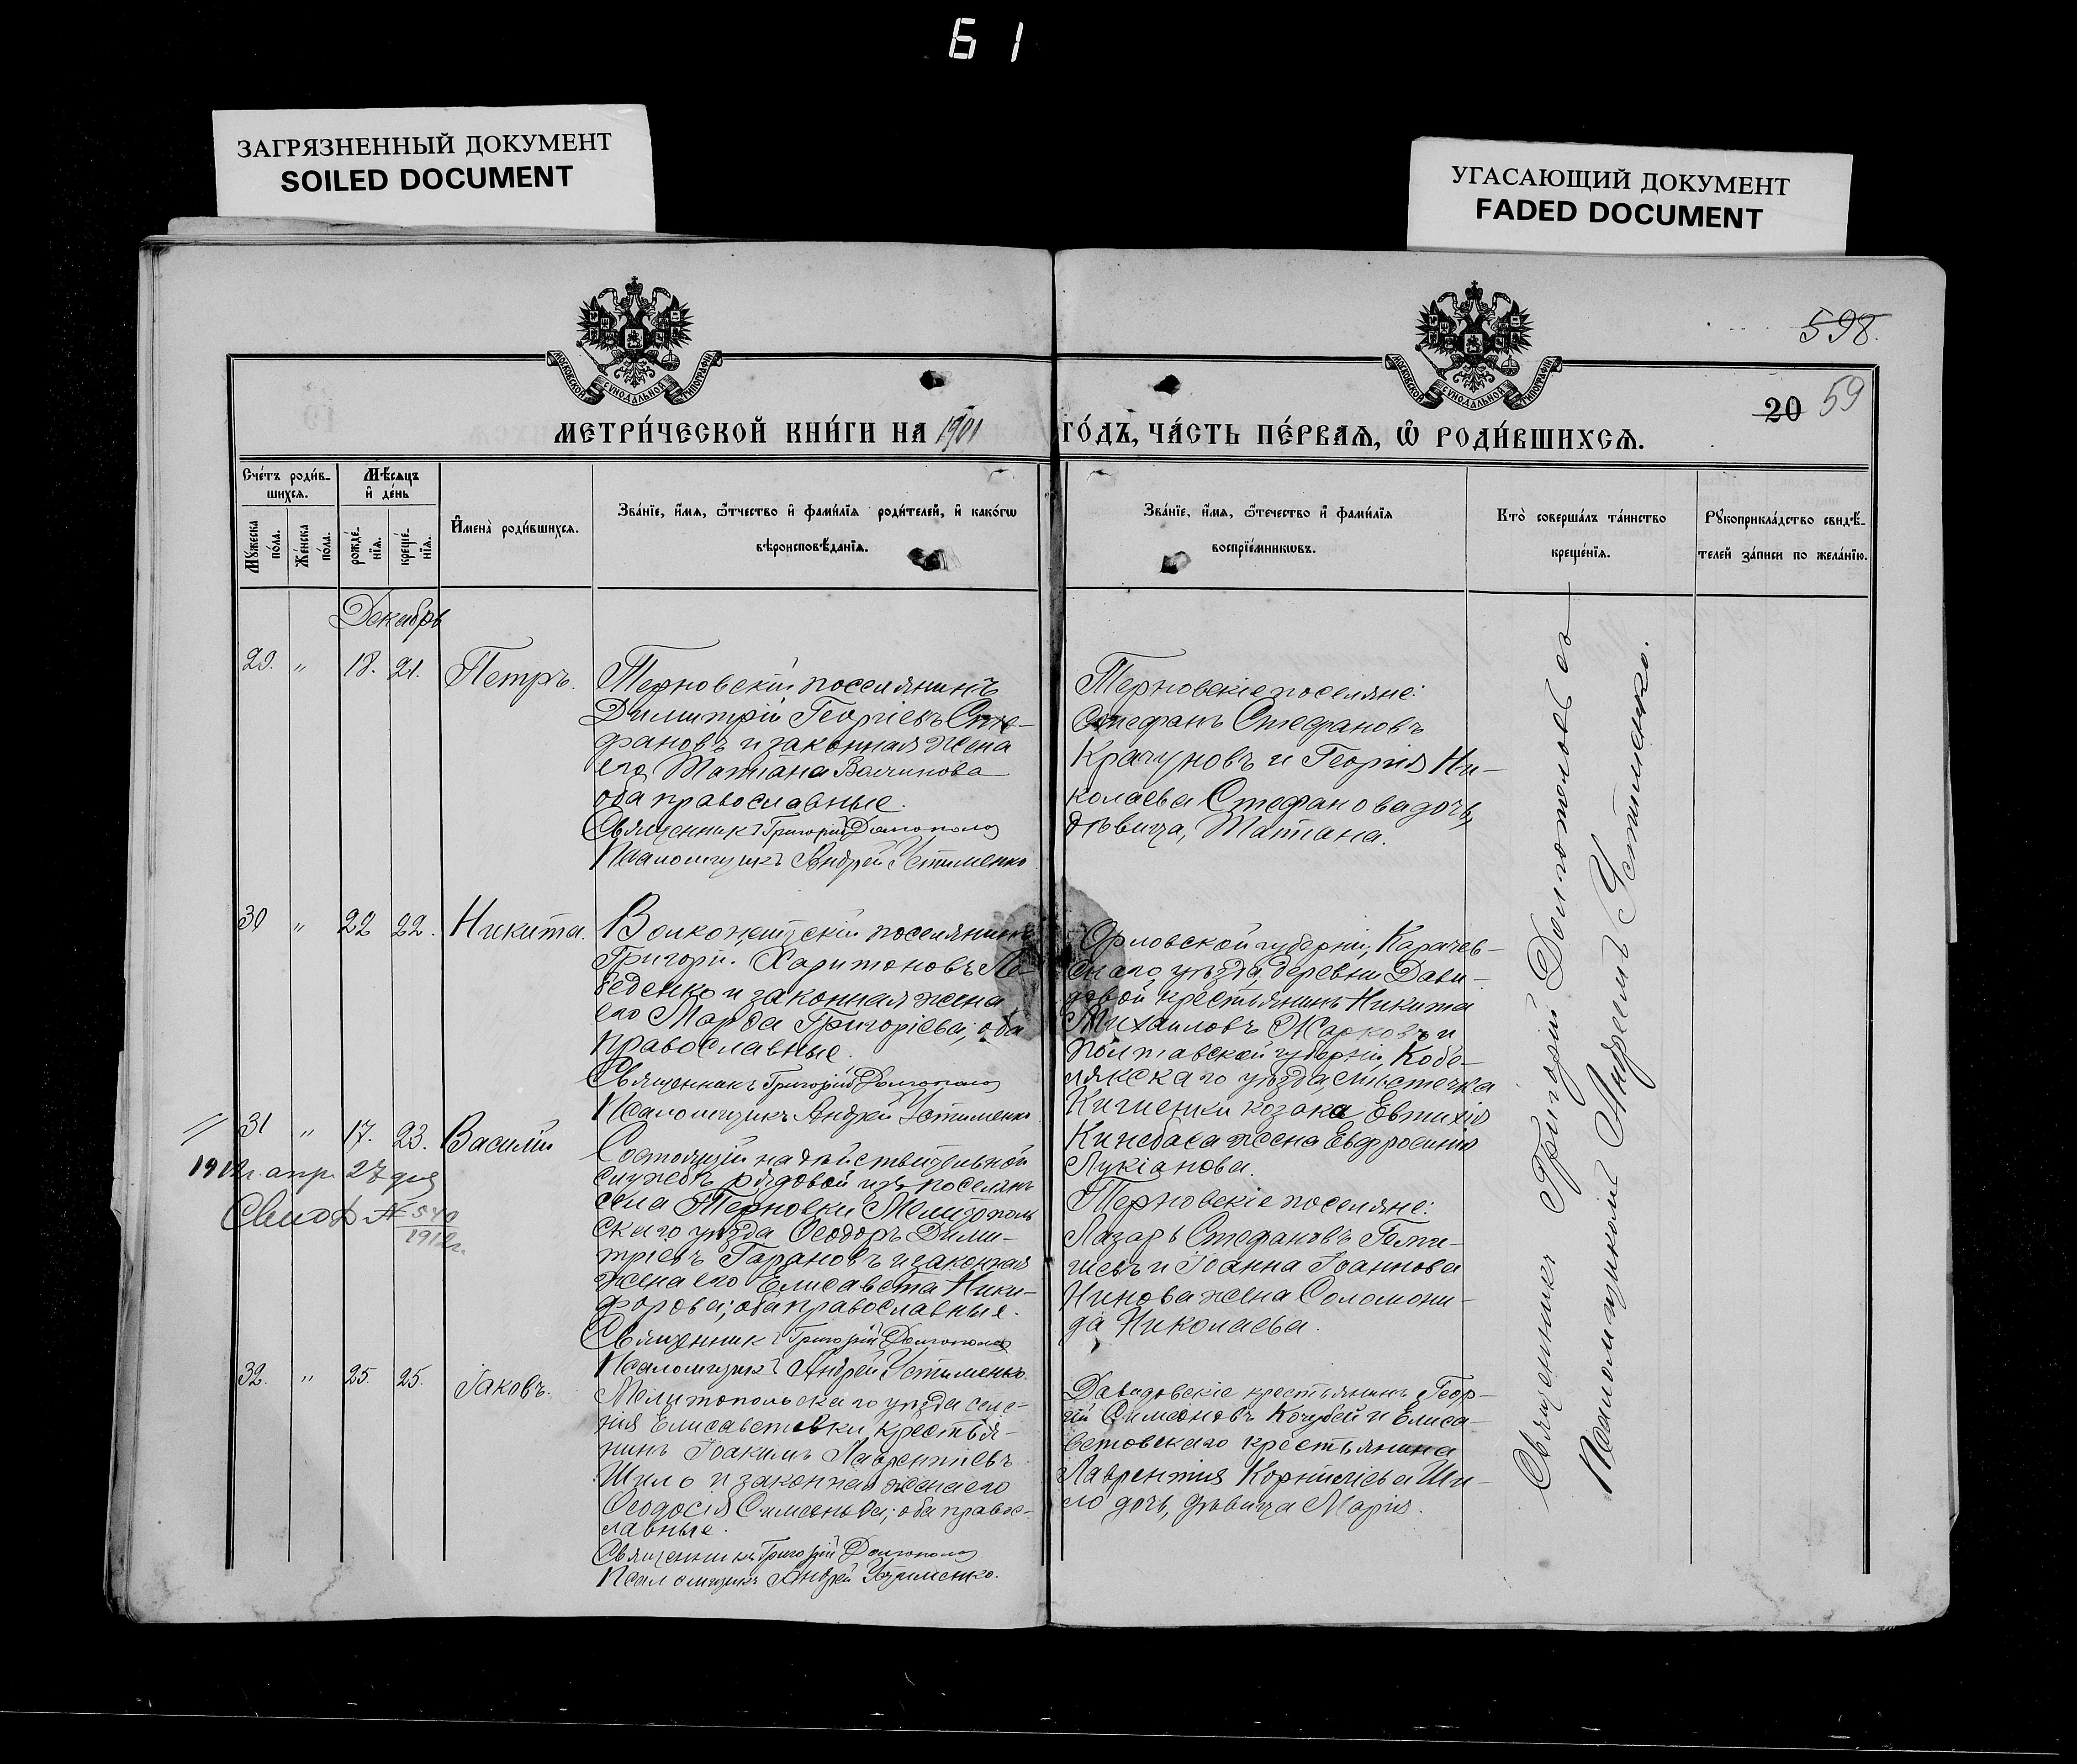 61
ЗАГРЯЗНЕННЫЙ ДОКУМЕНТ
SOILED DOCUMENT
УГАСАЮЩИЙ ДОКУМЕНТ
FADED DOCUMENT
МОСКОВСКОЙ СѴНОДАЛЬНОЙ ТИПОГРАФІИ
МОСКОВСКОЙ СѴНОДАЛЬНОЙ ТИПОГРАФІИ
598.
20 59
МЕТРИ́ЧЕСКОЙ КНИ́ГИ НА 1901 ГО́ДЪ, ЧА́СТЬ ПЕ́РВАЯ, Ѿ РОДИ́ВШИХСѦ.
Сче́тъ роди́в-
шихсѧ.
Мѣ́сяцъ
и҆ де́нь
Мꙋ́жеска
по́ла.
Же́нска
по́ла.
рожде́-
нїѧ.
креще́-
нїѧ.
И҆мена̀ роди́вшихсѧ.
Зва́нїе, и҆́мѧ, ѻ҆́тчество и҆ фами́лїѧ роди́телей, и҆ како́гѡ
вѣроисповѣ́данїѧ.
Зва́нїе, и҆́мѧ, ѻ҆те́чество и҆ фами́лїѧ
воспрїе́мникѡвъ.
Кто̀ соверша́лъ та́инство
креще́нїѧ.
Рꙋкоприкла́дство свидѣ́-
телей за́писи по жела́нїю.
Декабрь
29. " 18. 21. Петръ.
Терновскій поселянинъ
Димитрій Георгіевъ Сте-
фановъ и законная жена
его Татіана
оба православные.
Священникъ Григорій Долгополов
Псаломщикъ Андрей Устименко
Терновскіе поселяне:
Стефанъ Стефановъ
Крачуновъ и Георгія Ни-
колаева Стефанова дочь,
дѣвица, Татіана.
30 " 22 22. Никита.
поселянинъ
Григорій Харитоновъ Ле-
беденко и законная жена
его Марѳа Григоріева; оба
православные.
Священникъ Григорій Долгополов
Псаломщикъ Андрей Устименко
Орловской губерніи, Карачев-
скаго уѣзда, деревни Дави-
довой крестьянинъ Никита
Михаиловъ Жарковъ и
Полтавской губерніи, Кобе-
лякскаго уѣзда, мѣстечка
козака Евтихія
жена Евфросинія
Лукіанова.
31 " 17. 23. Василій
1912 г. апр. 27 дня
№ 540
1912 г.
Состоящій на дѣйствительной
службѣ рядовой изъ поселянъ
села Терновки Мелитополь
скаго уѣзда Ѳеодоръ Дими-
тріевъ Гарановъ и законная
жена его Елисавета Ники-
форова; оба православные.
Священникъ Григорій Долгополов
Псаломщикъ Андрей Устименко
Терновскіе поселяне:
Лазарь Стефановъ
и Іоанна Іоаннова
Нинова жена Соломони-
да Николаева.
32. " 25. 25. Іаковъ.
Мелитопольскаго уѣзда селе-
нія Елисаветовки крестья-
нинъ Іоакимъ Лаврентіевъ
Шило и законная жена его
Ѳеодосія Симеонова; оба право-
славные.
Священникъ Григорій Долгополов
Псаломщикъ Андрей Устименко.
Давидовскіе крестьянинъ Геор-
гій Симеоновъ Кочубей и Елиса-
ветовскаго крестьянина
Лаврентія Корниліева Ши-
ло дочь, дѣвица Марія.
Священникъ Григорій Долгополовъ съ
Псаломщикомъ Андреемъ Устименко.